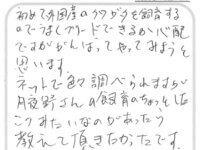 初めて外国産のクワガタを飼育する
のでうまくブリードできるか心配
ですががんばってやってみようと
思います。
ネットで色々調べられますが
月夜野さんの飼育のちょっとした
こつみたいなのがあったら
教えて頂きたかったです。